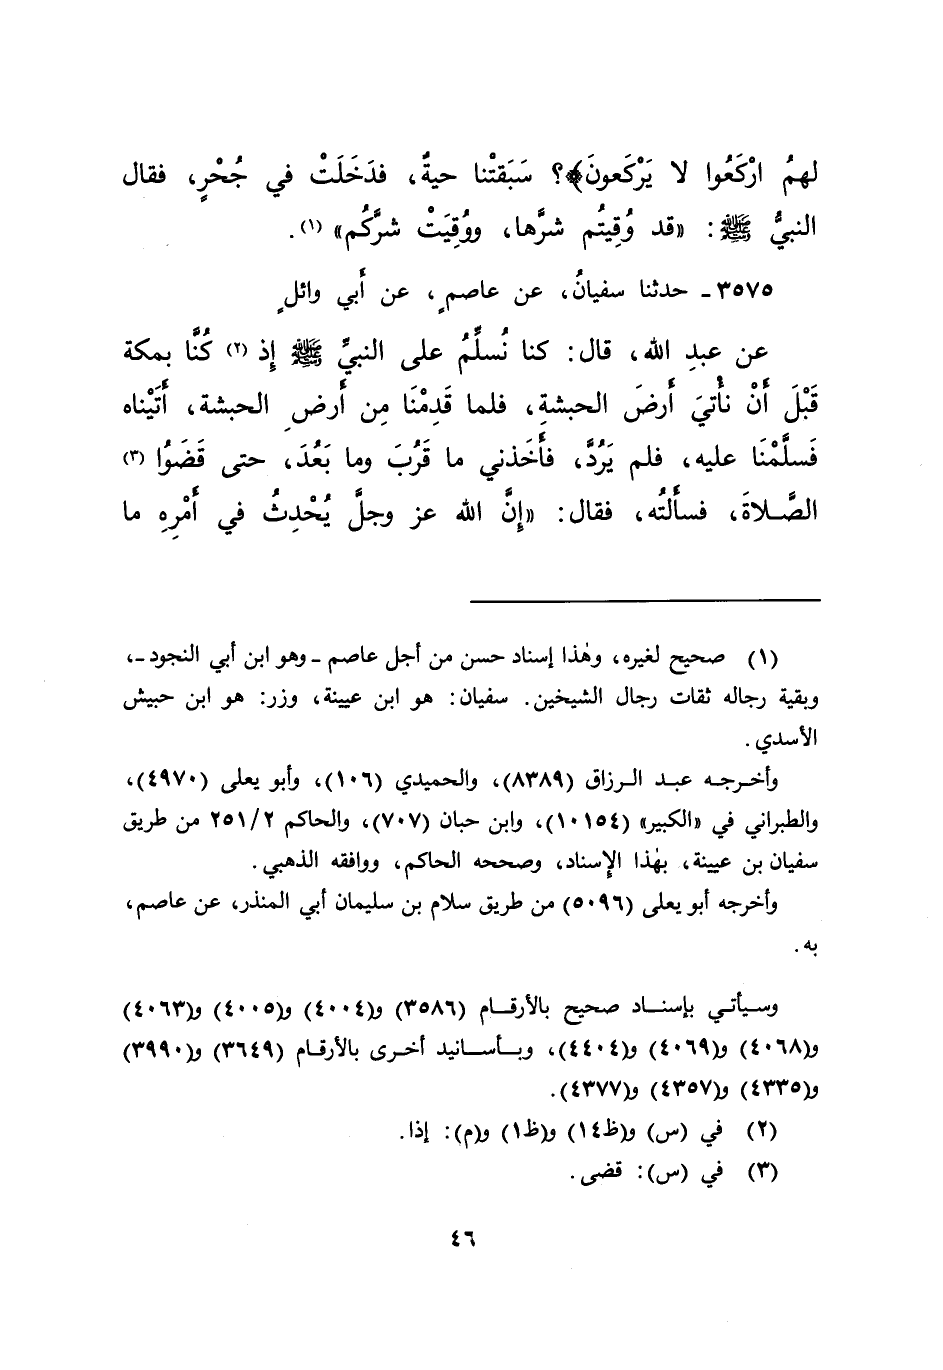 لهمُ ارْكَعُوا لا يَرْكَعونَ﴾؟ سَبَقتْنا حيةٌ، فدَخَلَتْ في جُحْرٍ، فقال
النبيُّ ﷺ: «قد وُقِيتُم شرَّها، ووُقِيَتْ شرَّكُم» (١).
٣٥٧٥ ـ حدثنا سفيانُ، عن عاصمٍ، عن أَبي وائلٍ
عن عبدِ الله، قال: كنا نُسلِّمُ على النبيِّ ﷺ إِذ (٢) كُنَّا بمكة
قَبْلَ أَنْ نأْتيَ أَرضَ الحبشةِ، فلما قَدِمْنَا مِن أَرضِ الحبشة، أَتَيْناه
فَسلَّمْنَا عليه، فلم يَرُدَّ، فأَخذني ما قَرُبَ وما بَعُدَ، حتى قَضَوُا (٣)
الصَّلاةَ، فسأَلتُه، فقال: «إِنَّ الله عز وجلَّ يُحْدِثُ في أَمْرِهِ ما
(١) صحيح لغيره، وهٰذا إسناد حسن من أجل عاصم ـ وهو ابن أبي النجود ـ،
وبقية رجاله ثقات رجال الشيخين. سفيان: هو ابن عيينة، وزر: هو ابن حبيش
الأسدي.
وأخرجه عبد الرزاق (٨٣٨٩)، والحميدي (١٠٦)، وأبو يعلى (٤٩٧٠)،
والطبراني في «الكبير» (١٠١٥٤)، وابن حبان (٧٠٧)، والحاكم ٢/٢٥١ من طريق
سفيان بن عيينة، بهٰذا الإسناد، وصححه الحاكم، ووافقه الذهبي.
وأخرجه أبو يعلى (٥٠٩٦) من طريق سلام بن سليمان أبي المنذر، عن عاصم،
به.
وسيأتي بإسناد صحيح بالأرقام (٣٥٨٦) و(٤٠٠٤) و(٤٠٠٥) و(٤٠٦٣)
و(٤٠٦٨) و(٤٠٦٩) و(٤٤٠٤)، وبأسانيد أخرى بالأرقام (٣٦٤٩) و(٣٩٩٠)
و(٤٣٣٥) و(٤٣٥٧) و(٤٣٧٧).
(٢) في (س) و(ظ١٤) و(ظ١) و(م): إذا.
(٣) في (س): قضى.
٤٦